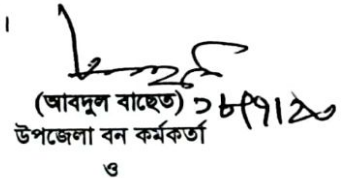 ।
(আবদুল বাছেত)
উপজেলা বন কর্মকর্তা
ও